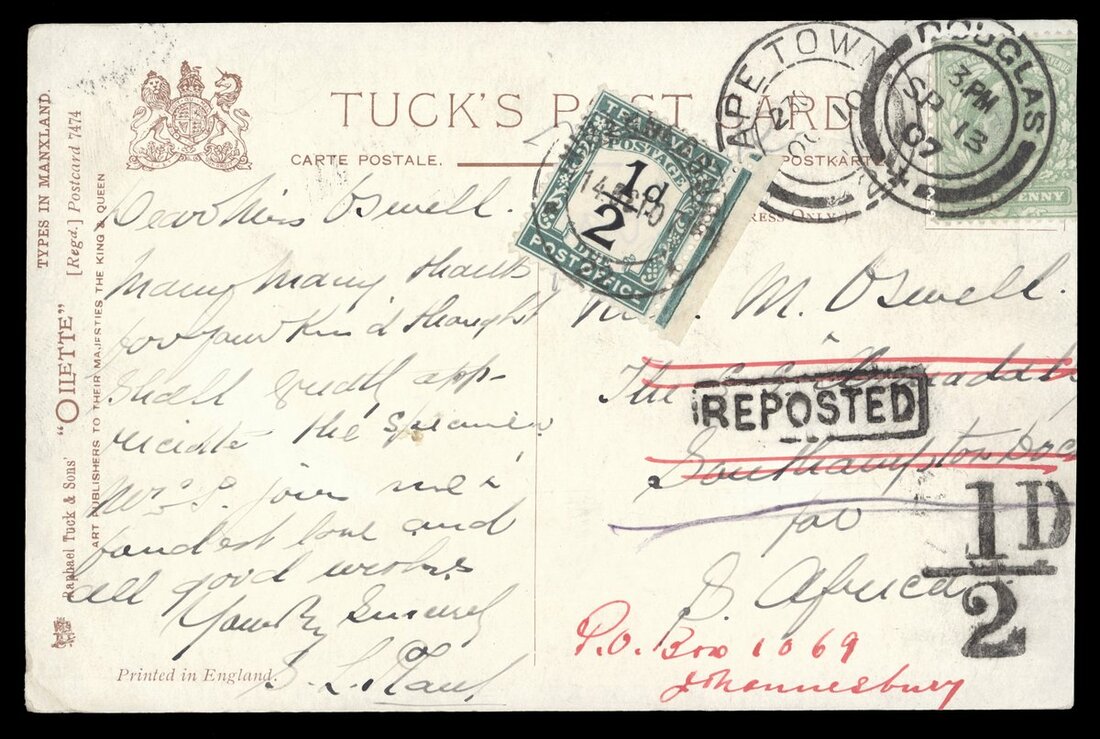 TYPES IN MANXLAND.
[Regd.] Postcard 7474
Raphael Tuck & Sons' "OILETTE"
ART PUBLISHERS TO THEIR MAJESTIES THE KING & QUEEN
TUCK'S POST CARD
CARTE POSTALE.
POSTKARTE
RESS ONLY.)
APE TOWN
DOUGLAS
3.PM
SP 13
07
ENNY
TRANSVAAL
POSTAGE
1/2 d
DUE
Dear Miss Oswell.
Many many thanks
for your kind thought
Shall greatly app-
reciate the specimen
Mrs S. join me i
fondest love and
all good wishes
Yours Sincerely
Printed in England.
M. Oswell.
The S.S.
REPOSTED
Southampton Doc
1/2 D
for
S. Africa
P.O. Box 1069
Johannesburg